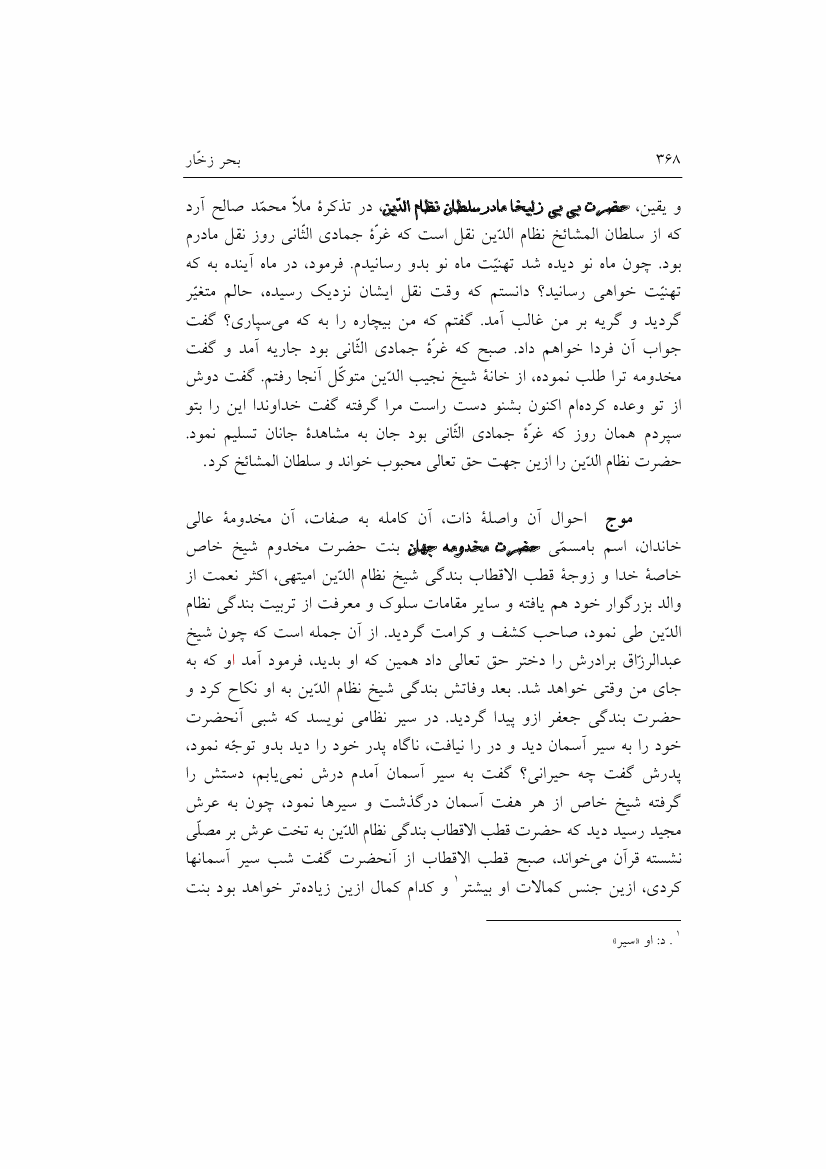 ۳۶۸ بحر زخّار
و یقین، حضرت بی بی زلیخا مادر سلطان نظام الدّین، در تذکرهٔ ملاّ محمّد صالح آرد
که از سلطان المشائخ نظام الدّین نقل است که غرّهٔ جمادی الثّانی روز نقل مادرم
بود. چون ماه نو دیده شد تهنیّت ماه نو بدو رسانیدم. فرمود، در ماه آینده به که
تهنیّت خواهی رسانید؟ دانستم که وقت نقل ایشان نزدیک رسیده، حالم متغیّر
گردید و گریه بر من غالب آمد. گفتم که من بیچاره را به که می‌سپاری؟ گفت
جواب آن فردا خواهم داد. صبح که غرّهٔ جمادی الثّانی بود جاریه آمد و گفت
مخدومه ترا طلب نموده، از خانهٔ شیخ نجیب الدّین متوکّل آنجا رفتم. گفت دوش
از تو وعده کرده‌ام اکنون بشنو دست راست مرا گرفته گفت خداوندا این را بتو
سپردم همان روز که غرّهٔ جمادی الثّانی بود جان به مشاهدهٔ جانان تسلیم نمود.
حضرت نظام الدّین را ازین جهت حق تعالی محبوب خواند و سلطان المشائخ کرد.
موج احوال آن واصلهٔ ذات، آن کامله به صفات، آن مخدومهٔ عالی
خاندان، اسم بامسمّی حضرت مخدومه جهان بنت حضرت مخدوم شیخ خاص
خاصهٔ خدا و زوجهٔ قطب الاقطاب بندگی شیخ نظام الدّین امیتهی، اکثر نعمت از
والد بزرگوار خود هم یافته و سایر مقامات سلوک و معرفت از تربیت بندگی نظام
الدّین طی نمود، صاحب کشف و کرامت گردید. از آن جمله است که چون شیخ
عبدالرزّاق برادرش را دختر حق تعالی داد همین که او بدید، فرمود آمد او که به
جای من وقتی خواهد شد. بعد وفاتش بندگی شیخ نظام الدّین به او نکاح کرد و
حضرت بندگی جعفر ازو پیدا گردید. در سیر نظامی نویسد که شبی آنحضرت
خود را به سیر آسمان دید و در را نیافت، ناگاه پدر خود را دید بدو توجّه نمود،
پدرش گفت چه حیرانی؟ گفت به سیر آسمان آمدم درش نمی‌یابم، دستش را
گرفته شیخ خاص از هر هفت آسمان درگذشت و سیرها نمود، چون به عرش
مجید رسید دید که حضرت قطب الاقطاب بندگی نظام الدّین به تخت عرش بر مصلّی
نشسته قرآن می‌خواند، صبح قطب الاقطاب از آنحضرت گفت شب سیر آسمانها
کردی، ازین جنس کمالات او بیشتر۱ و کدام کمال ازین زیاده‌تر خواهد بود بنت
۱. د: او «سیر»